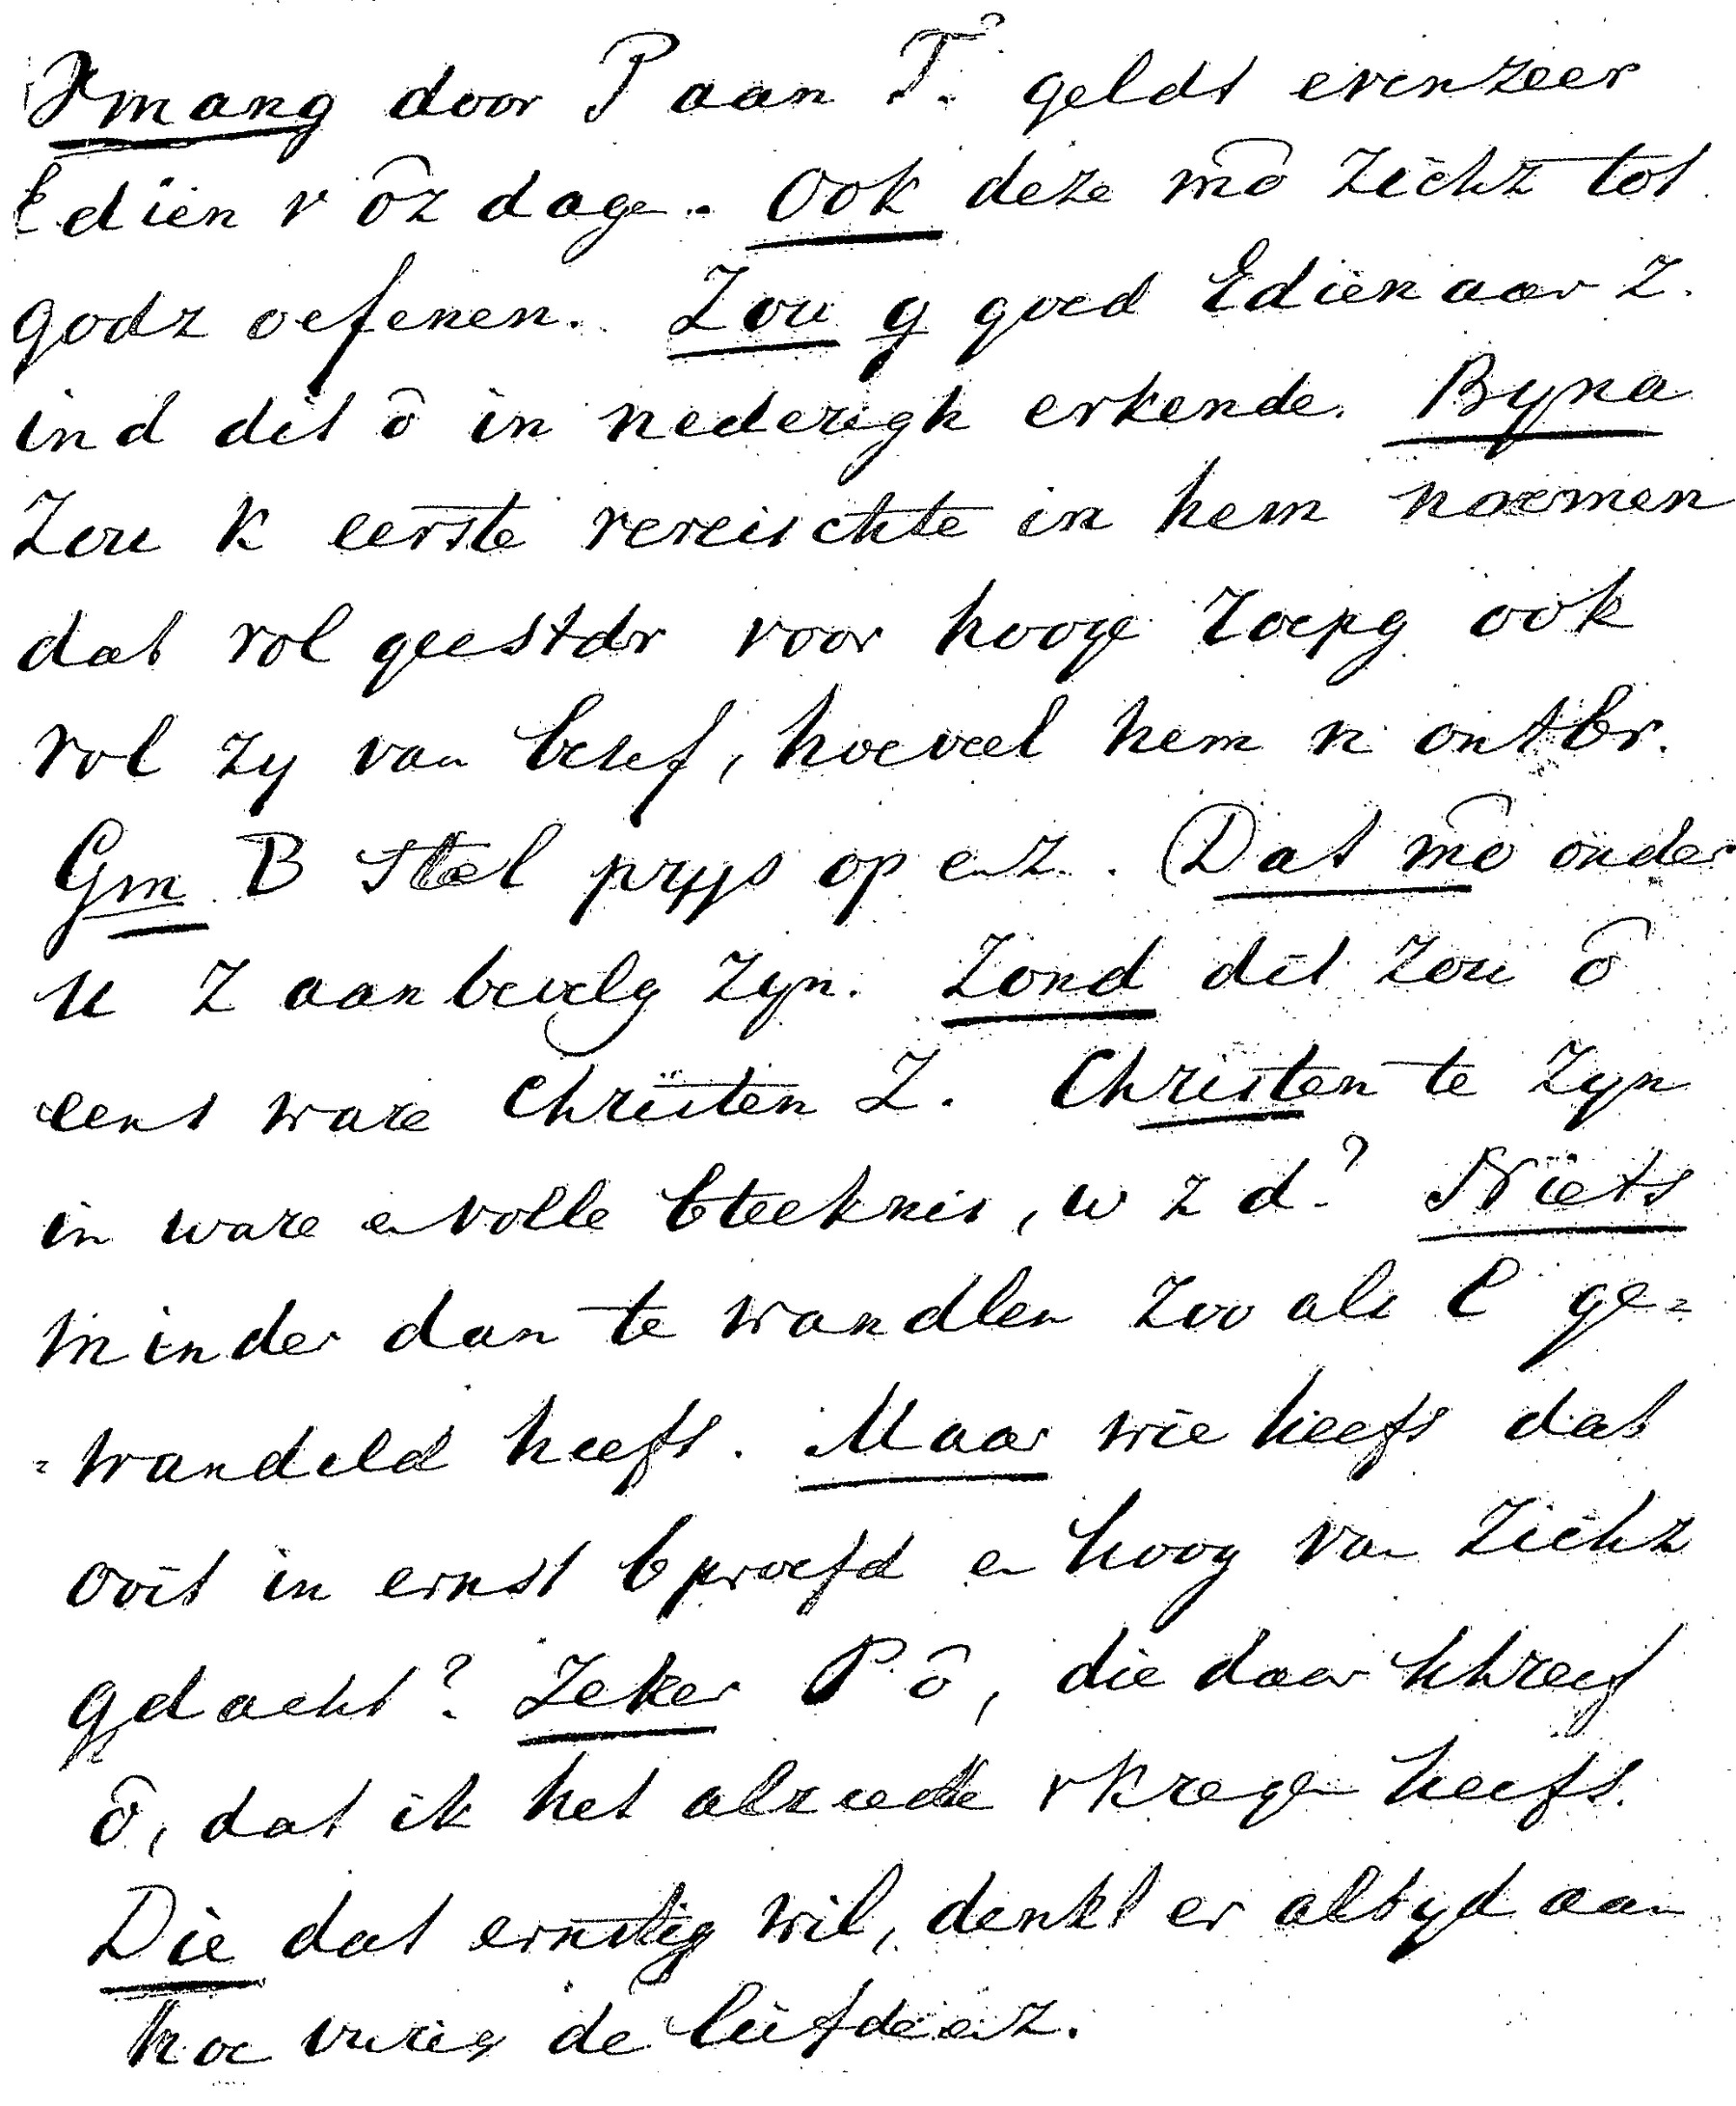 Vmang door P aan T. geldt evenzeer
Edien v ôz dage. Ook deze mô zichz tot
godz oefenen. Zou g goed Edienaar Z.
ind dit ô in nederigh erkende. Byna
Zou k eerste vereischte in hem noemen
dat vol geestdr voor hooge roepg ook
vol zy van besef, hoeveel hem n ontbr.
Gm B stel prys op enz. (Dat mô onder
u z aanbevelg zyn. Zond dit zou ô
eens ware Christen Z. Christen te zyn
in ware en volle bteeknis, w z d? Niets
minder dan te wandlen zoo als C ge=
=wandeld heeft. Maar wie heeft dat
ooit in ernst bproefd en hoog van zichz
gdacht? Zeker P ô, die daar schreef
ô, dat ik het alreede vkregen heeft.
Die dat ernstig wil, denkt er altyd aan
hoe vurig de liefde enz.